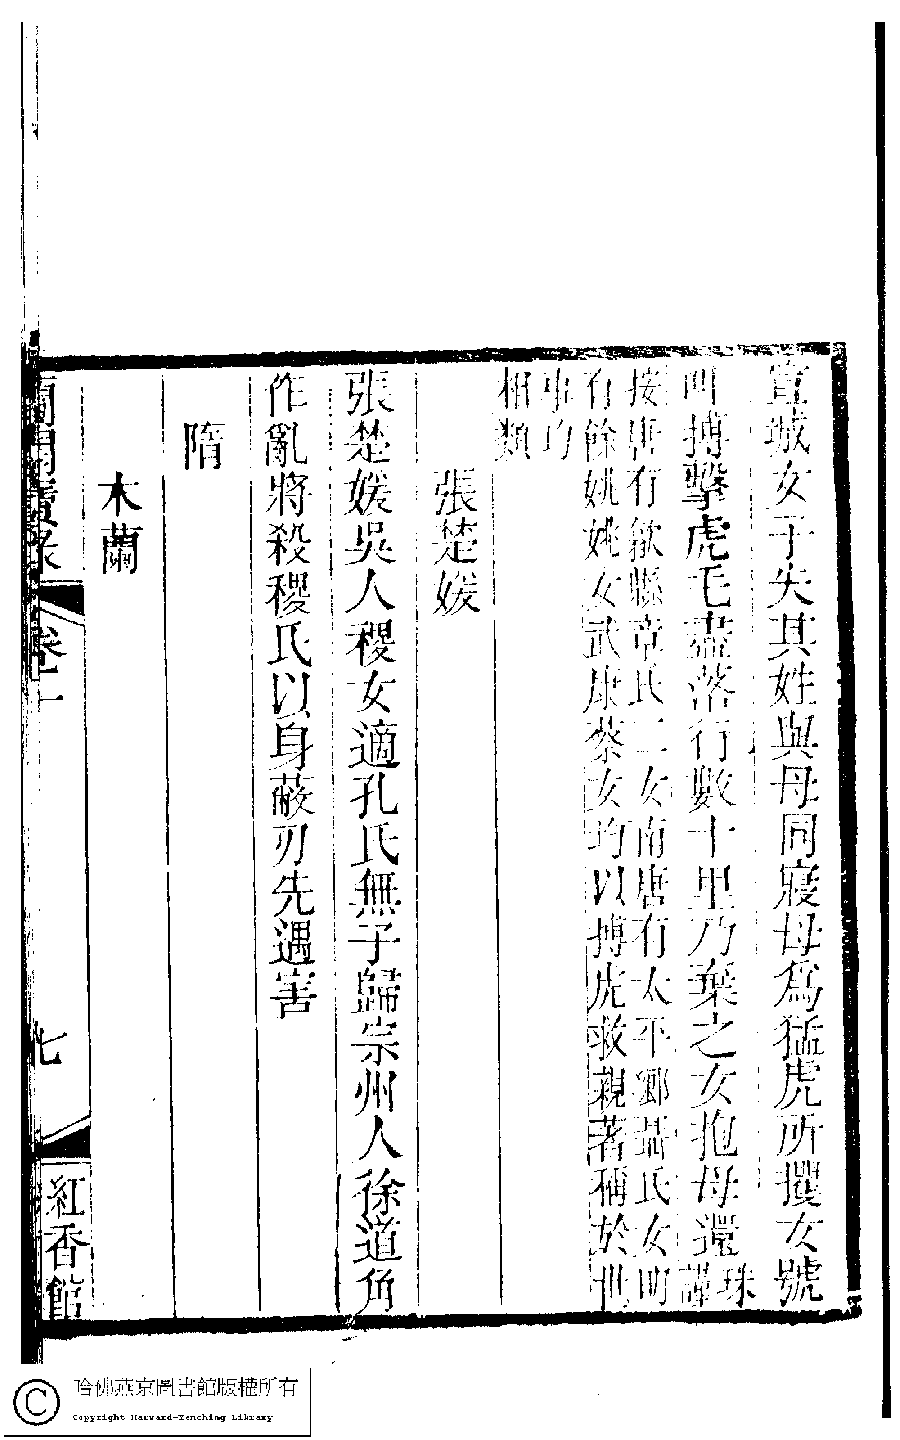 宣城女子失其姓與母同寢母爲猛虎所攫女號
叫搏擊虎毛盡落行數十里乃棄之女抱母還
珠
謹
按唐有歙縣章氏二女南唐有太平鄉聶氏女明
有餘姚姚女武康蔡女均以搏虎救親著稱於世
事均
相類
張楚媛
張楚媛吳人稷女適孔氏無子歸宗州人徐道角
作亂將殺稷氏以身蔽刃先遇害
隋
木蘭
蘭閨寶錄
卷二
七
紅香館
哈佛燕京圖書館版權所有
Copyright Harvard-Yenching Library